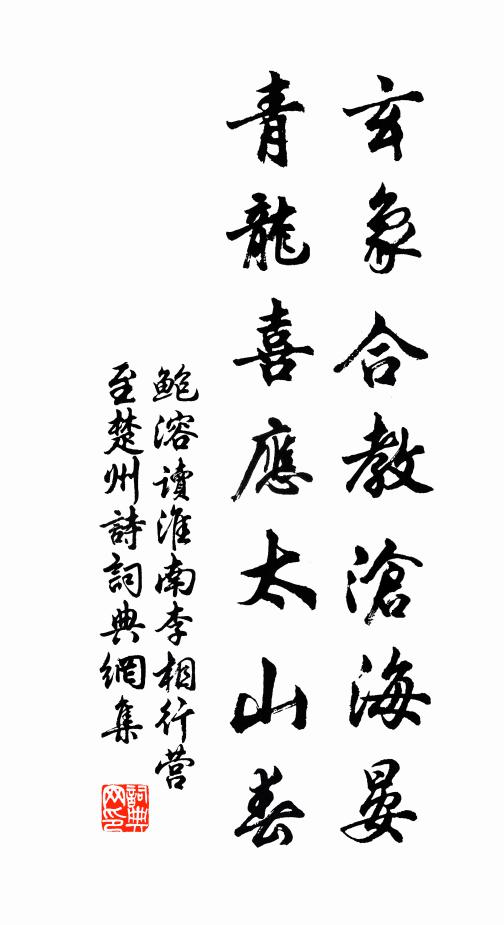 玄象合教滄海晏
青龍喜應太山春
鮑溶讀淮南李相行营
至楚州詩詞典網集
詞典网印